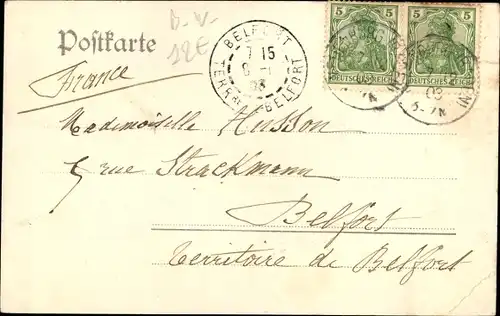 D-W-
12E
Postkarte
France
BELFORT
7 15
9 -1
03
TERRRE BELFORT
5 5 5 5
DEUTSCHES REICH DEUTSCHES REICH
03
5-7N
Mademoiselle Husson
5 rue Strackmann
Belfort
Territoire de Belfort